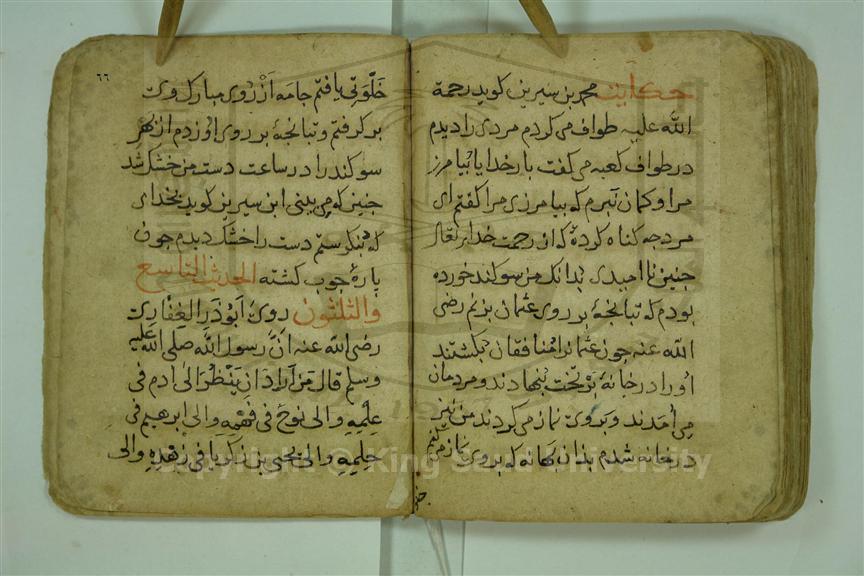 حکایت محمد بن سیرین کوید رحمة
الله علیه طواف می کردم مردی را دیدم
در طواف کعبه می کفت بار خدایا بیامرز
مرا و کمان نبرم که بیامرزی مرا کفتم ای
مرد جه کناه کردهٔ که از رحمت خدای تعالی
جنین ناامیدی بدانک من سوکند خورده
بودم که تبانجهٔ بر روی عثمان بزنم رضی
الله عنه جون عثمانرا منافقان بکشتند
اورا در خانه بر تخت بنهادند و مردمان
می آمدند و بروی نماز می کردند من نیز
در خانه شدم بذان بهانه که بروی نماز می کنم
٦٦
خلوتی یافتم جامه از روی مبارک وی
بر کرفتم و تبانجهٔ بر روی او زدم از بهر
سوکند را در ساعت دست من خشک شد
جنین که می بینی ابن سیرین کوید بخدای
که بنکرستم دست را خشک دیدم جون
پارهٔ جوب کشته الحدیث التاسع
والثلثون روی ابوذر الغفاری
رضی الله عنه ان رسول الله صلی الله علیه
وسلم قال من اراد ان ینظر الی ادم فی
علمه والی نوح فی فهمه والی ابرهیم فی
حلمه والی یحیی بن زکریا فی زهده والی
Copyright © King Saud University